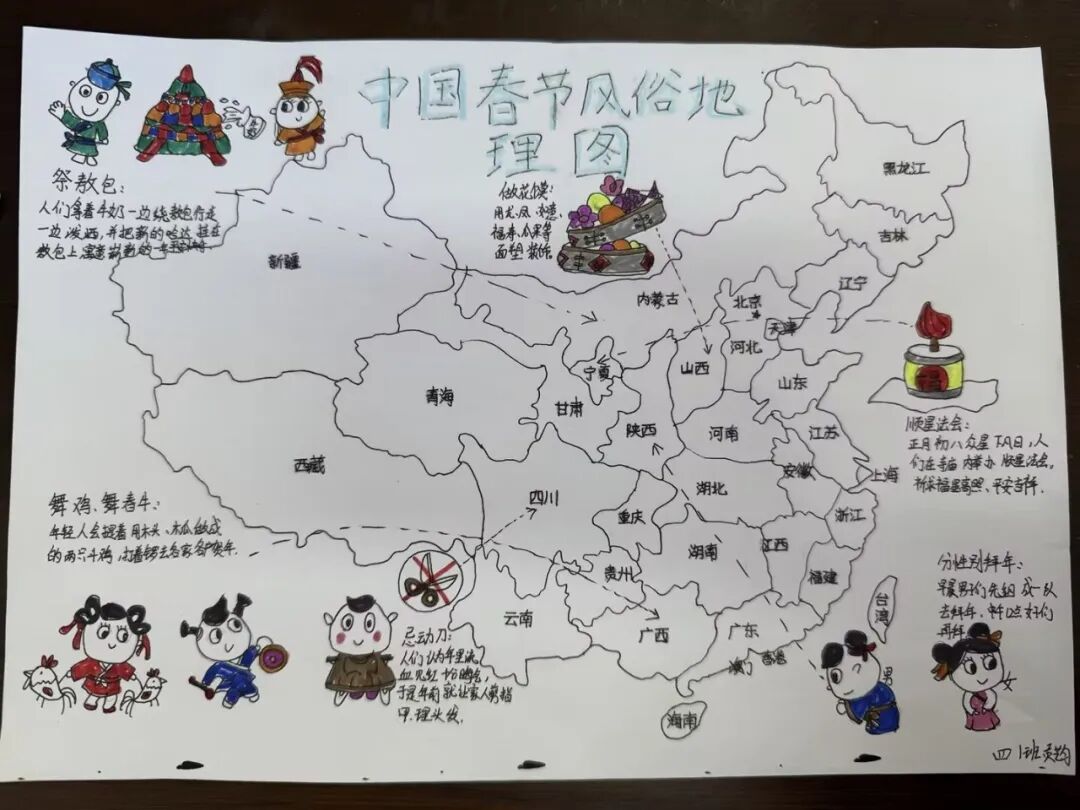 中国春节风俗地
理图
祭敖包：
人们拿着牛奶一边绕敖包行走
一边泼洒，并把新的哈达挂在
敖包上寓意崭新的一年
做花馍：
用龙、凤、如意、
福寿、瓜果等
面塑装饰
黑龙江
吉林
辽宁
新疆
内蒙古
北京
天津
河北
山西
宁夏
山东
青海
甘肃
陕西
河南
江苏
西藏
安徽
上海
四川
湖北
重庆
浙江
湖南
江西
贵州
福建
云南
广西
广东
台湾
澳门
香港
海南
福
顺星法会：
正月初八众星下凡日，人
们在寺庙内举办顺星法会，
祈求福星高照、平安吉祥.
舞鸡、舞春牛：
年轻人会提着用木头、木瓜做成
的两只斗鸡，打着锣去各家各户贺年.
忌动刀：
人们认为年里流
血见红十分晦气，
于是年前就让家人剪指
甲、理头发.
分性别拜年：
早晨男子们先组成一队
去拜年，
再拜
男
女
四1班